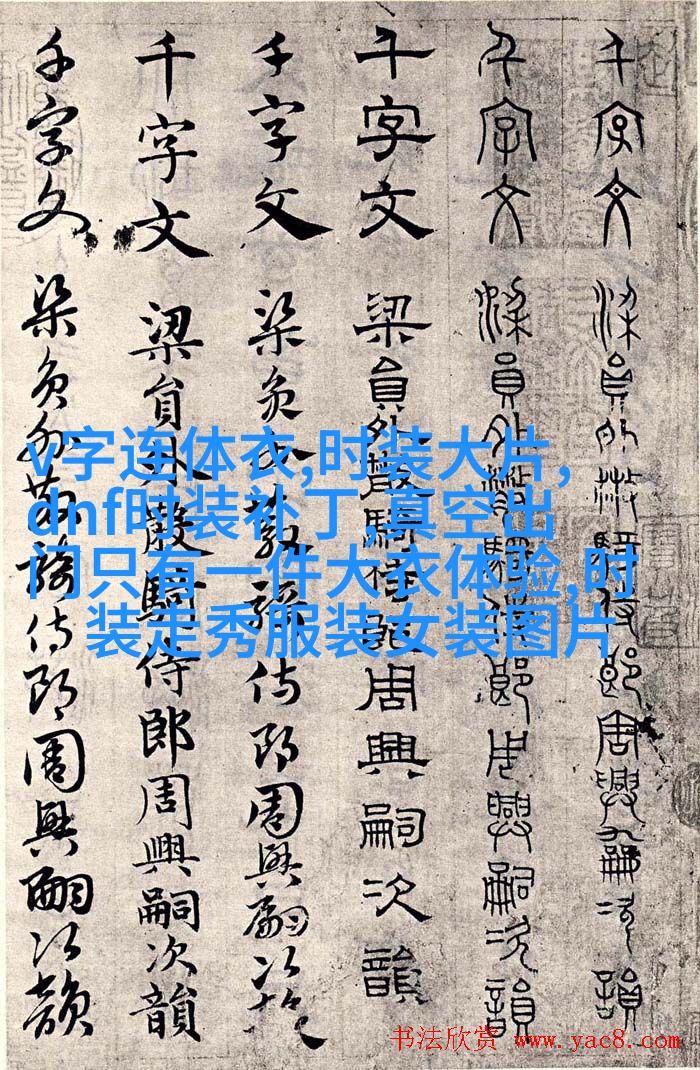 千字文
梁員外散騎侍郎周興嗣次韻
千字文
梁員外散騎侍郎周興嗣次韻
千字文
梁員外散騎侍郎周興嗣次韻
千字文
梁員外散騎侍郎周興嗣次韻
千字文
梁員外散騎侍郎周興嗣次韻
千字文
梁員外散騎侍郎周興嗣次韻
v字连体衣,时装大片,
dnf时装补丁,真空出
门只有一件大衣体验,时
装走秀服装女装图片
书法欣赏 www.yac8.com